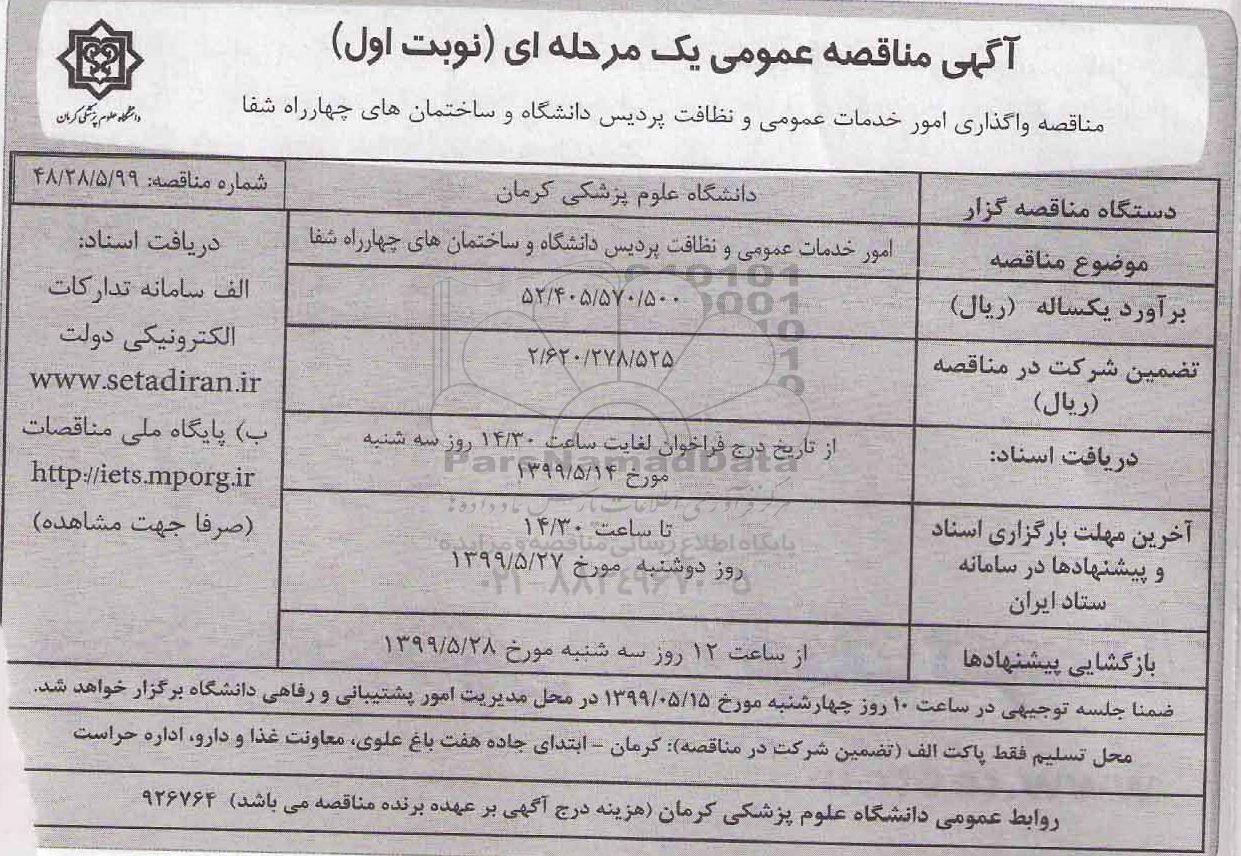 آگهی مناقصه عمومی یک مرحله ای (نوبت اول)
مناقصه واگذاری امور خدمات عمومی و نظافت پردیس دانشگاه و ساختمان های چهارراه شفا
دانشگاه علوم پزشکی کرمان
دستگاه مناقصه گزار
دانشگاه علوم پزشکی کرمان
شماره مناقصه: ۴۸/۲۸/۵/۹۹
موضوع مناقصه
امور خدمات عمومی و نظافت پردیس دانشگاه و ساختمان های چهارراه شفا
برآورد یکساله (ریال)
۵۲/۴۰۵/۵۷۰/۵۰۰
تضمین شرکت در مناقصه
(ریال)
۲/۶۲۰/۲۷۸/۵۲۵
دریافت اسناد:
از تاریخ درج فراخوان لغایت ساعت ۱۴/۳۰ روز سه شنبه
مورخ ۱۳۹۹/۵/۱۴
آخرین مهلت بارگزاری اسناد
و پیشنهادها در سامانه
ستاد ایران
تا ساعت ۱۴/۳۰
روز دوشنبه مورخ ۱۳۹۹/۵/۲۷
بازگشایی پیشنهادها
از ساعت ۱۲ روز سه شنبه مورخ ۱۳۹۹/۵/۲۸
دریافت اسناد:
الف سامانه تدارکات
الکترونیکی دولت
www.setadiran.ir
ب) پایگاه ملی مناقصات
http://iets.mporg.ir
(صرفا جهت مشاهده)
ضمنا جلسه توجیهی در ساعت ۱۰ روز چهارشنبه مورخ ۱۳۹۹/۰۵/۱۵ در محل مدیریت امور پشتیبانی و رفاهی دانشگاه برگزار خواهد شد.
محل تسلیم فقط پاکت الف (تضمین شرکت در مناقصه): کرمان - ابتدای جاده هفت باغ علوی، معاونت غذا و دارو، اداره حراست
روابط عمومی دانشگاه علوم پزشکی کرمان (هزینه درج آگهی بر عهده برنده مناقصه می باشد) ۹۲۶۷۶۴
ParsNamadData
پایگاه اطلاع رسانی مناقصه و مزایده
۰۲۱-۸۸۳۴۹۶۷۰-۵